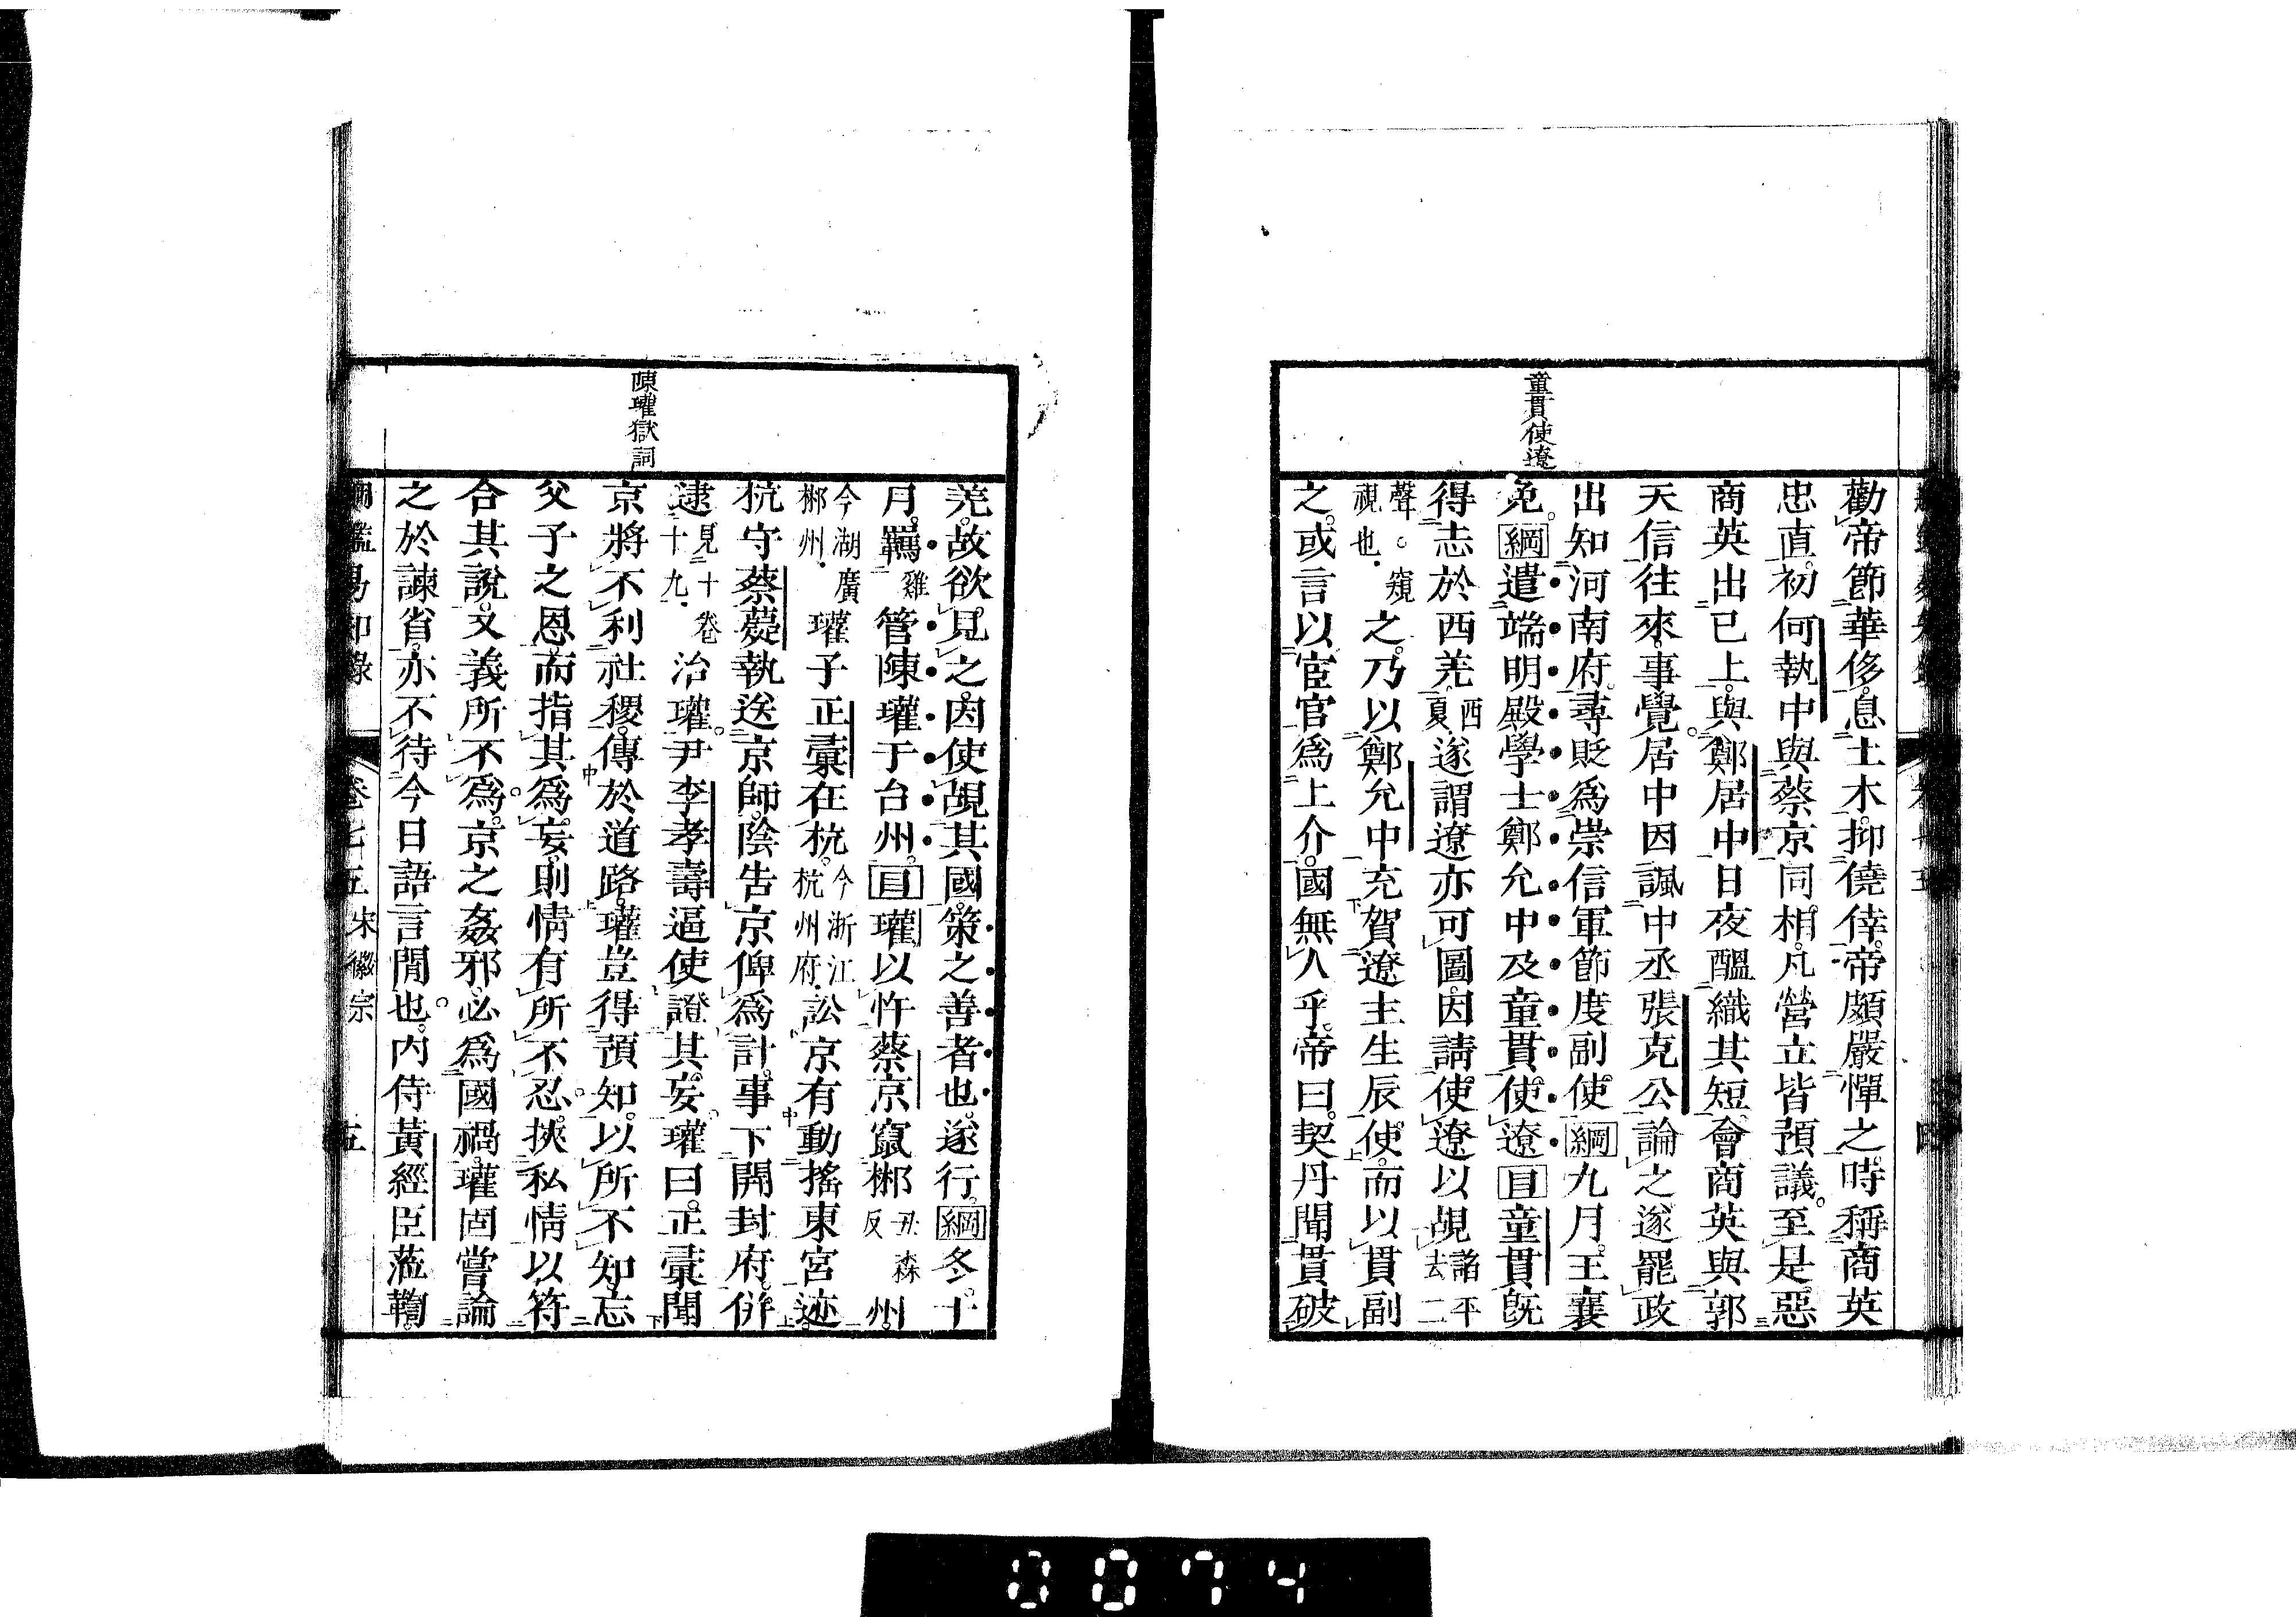 童貫使遼
勸帝節華侈息土木抑僥倖帝頗嚴憚之時稱商英
忠直初何執中與蔡京同相凡營立皆預議至是惡
商英出己上與鄭居中日夜醞織其短會商英與郭
天信往來事覺居中因諷中丞張克公論之遂罷政
出知河南府尋貶爲崇信軍節度副使綱九月王襄
免綱遣端明殿學士鄭允中及童貫使遼目童貫旣
得志於西羌西夏遂謂遼亦可圖因請使遼以覘詔平去二
聲○窺視也之乃以鄭允中充賀遼主生辰使而以貫副
之或言以宦官爲上介國無人乎帝曰契丹聞貫破
陳瓘獄詞
羌故欲見之因使覘其國策之善者也遂行綱冬十
月羈雞管陳瓘于台州目瓘以忤蔡京竄郴丑森反州
今湖廣郴州瓘子正彚在杭今浙江杭州府訟京有動搖東宮迹
杭守蔡薿執送京師陰告京俾爲計事下開封府倂
逮見二十卷十九治瓘尹李孝壽逼使證其妄瓘曰正彚聞
京將不利社稷傳於道路瓘豈得預知以所不知忘
父子之恩而指其爲妄則情有所不忍挾私情以符
合其說又義所不爲京之姦邪必爲國禍瓘固嘗論
之於諫省亦不待今日語言閒也內侍黃經臣蒞鞫
卷七五 宋徽宗 五
0074